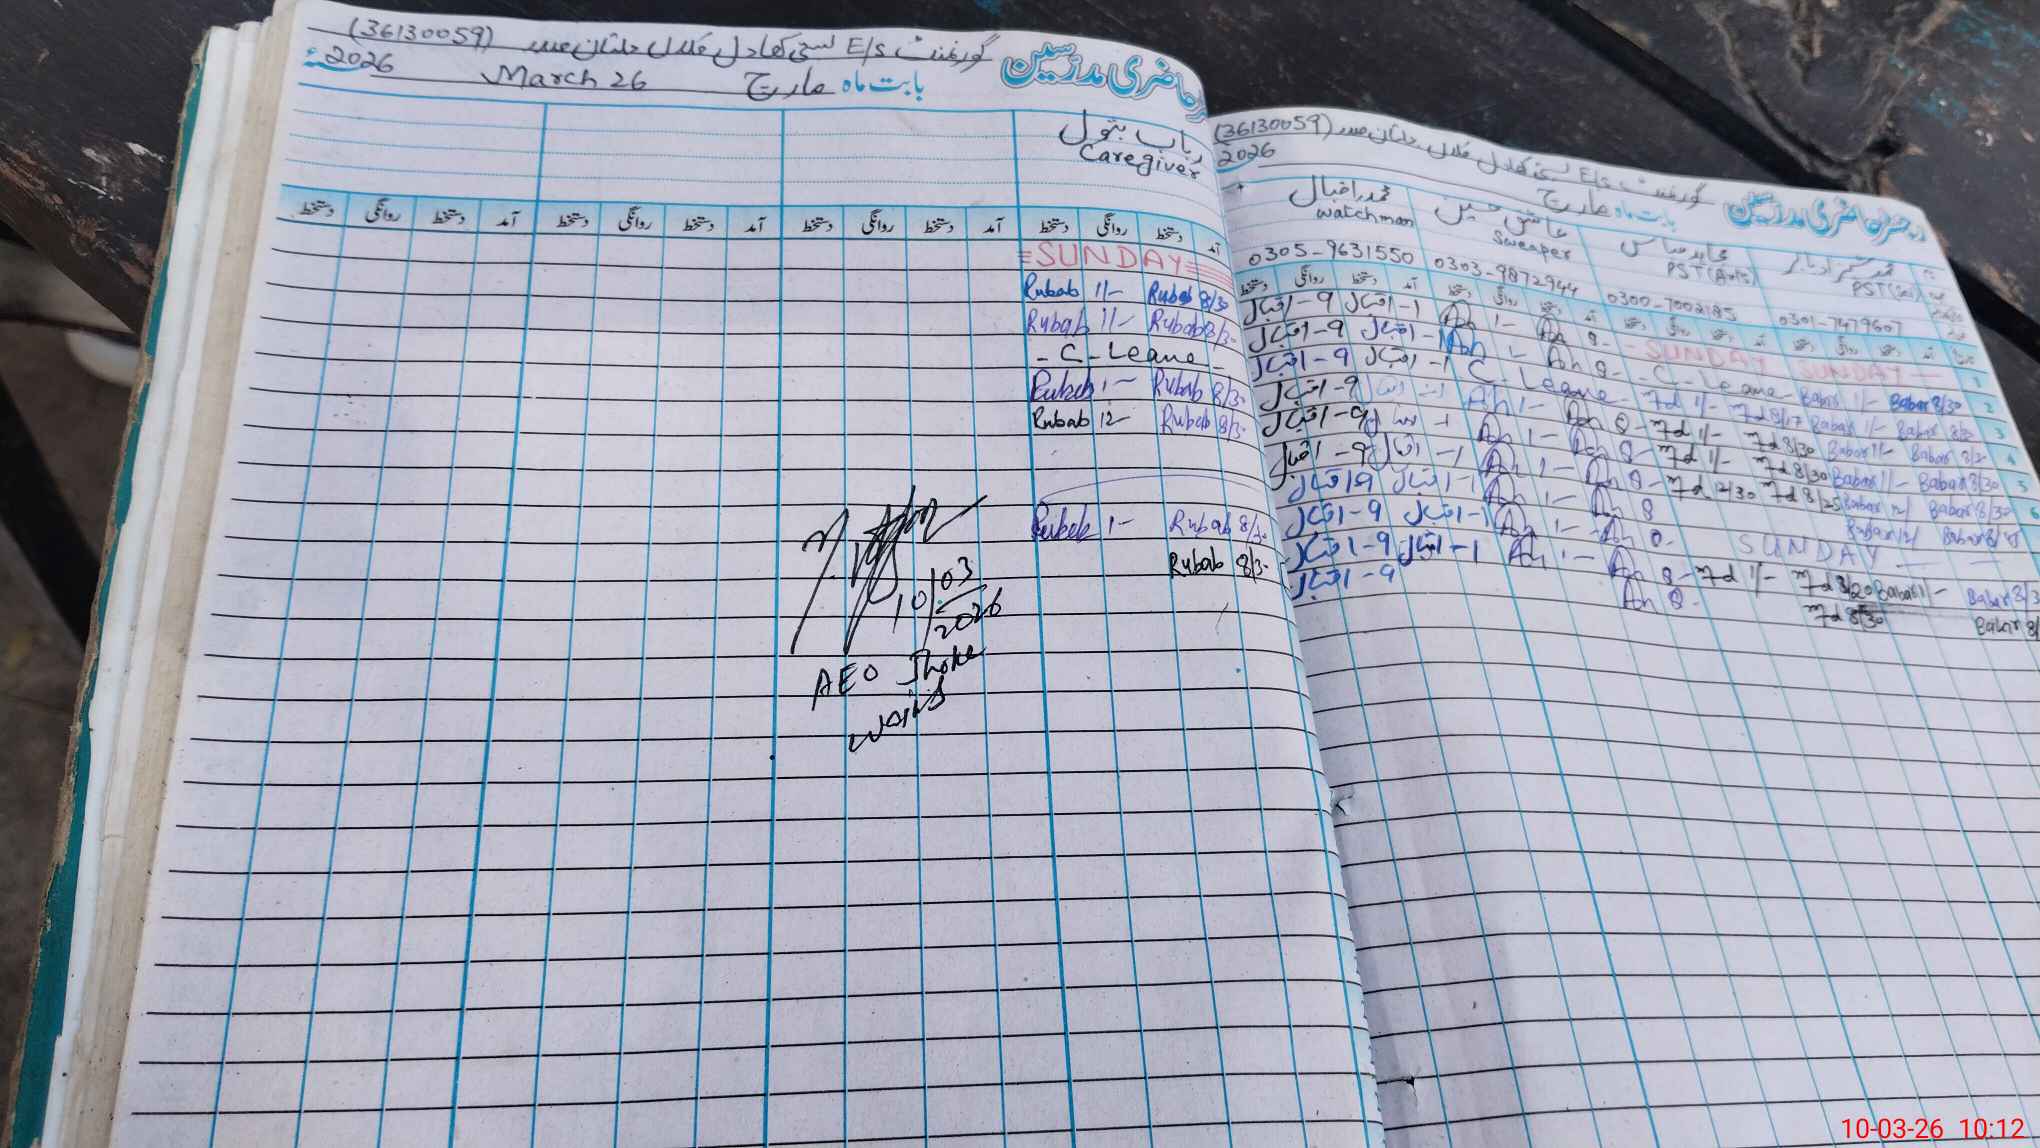 گورنمنٹ E/S بستی کھادل فلال ملتان صدر (36130059)
حاضری مدرسین بابت ماہ مارچ March 26 2026ء
رباب بتول
Caregiver
آمد دستخط روانگی دستخط آمد دستخط روانگی دستخط آمد دستخط روانگی دستخط آمد دستخط روانگی دستخط
SUNDAY
Rubab 8/30 Rubab 1/-
Rubab 8/30 Rubab 1/-
- C - Leave -
Rubab 8/30 Rubab 1-
Rubab 8/30 Rubab 12-
Rubab 8/30 Rubab 1-
Rubab 8/30
10/03/2026
AEO
(36130059)
حاضری مدرسین بابت ماہ مارچ 2026
PST(Sci)
PST(Arts)
عاشق حسین
Sweaper
محمد اقبال
Watchman
0301-7479607
0300-7002185
0303-9872944
0305-9631550
SUNDAY SUNDAY
1 An 8- An 1- اقبال 9- اقبال 1-
2 Babar 8/30 Babar 1/- C-Leave An 8- An 1- اقبال 9- اقبال 1-
3 Babar 8/30 Babar 1/- Md 8/17 Md 1/- C-Leave اقبال 9- اقبال 1-
4 Babar 8/30 Babar 1/- Md 8/30 Md 1/- An 8- An 1- اقبال 9- اقبال 1-
5 Babar 8/30 Babar 1/- Md 8/30 Md 1/- An 8- An 1- اقبال 9- اقبال 1-
6 Babar 8/30 Babar 12/ Md 8/25 Md 12/30 An 8- An 1- اقبال 9- اقبال 1-
Babar 12/ An 8 An 1- اقبال 9 اقبال 1-
SUNDAY An 8- An 1- اقبال 9- اقبال 1-
Babar 8/3 Babar 1/- Md 8/20 Md 1/- An 8- An 1- اقبال 9- اقبال 1-
Babar 8/ Md 8/30 An 8- اقبال 9-
10-03-26 10:12